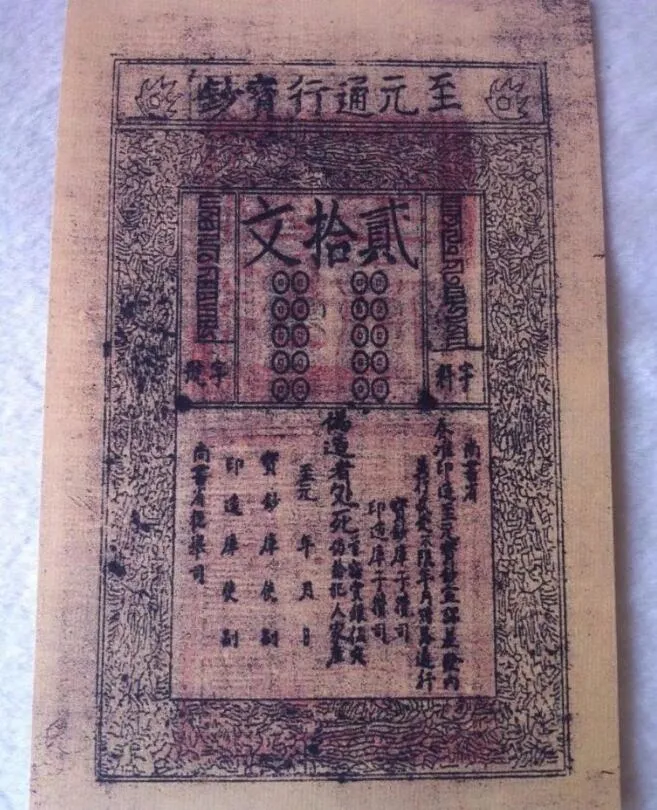 至元通行寶鈔
貳拾文
字料
字號
尚書省
奏准印造至元寶鈔宣課差役內
並行收受不限年月諸路通行
寶鈔庫子攢司
印造庫子攢司
偽造者処死
首告者賞銀伍定
仍給犯人家產
至元 年 月 日
寶鈔庫使副
印造庫使副
尚書省提舉司